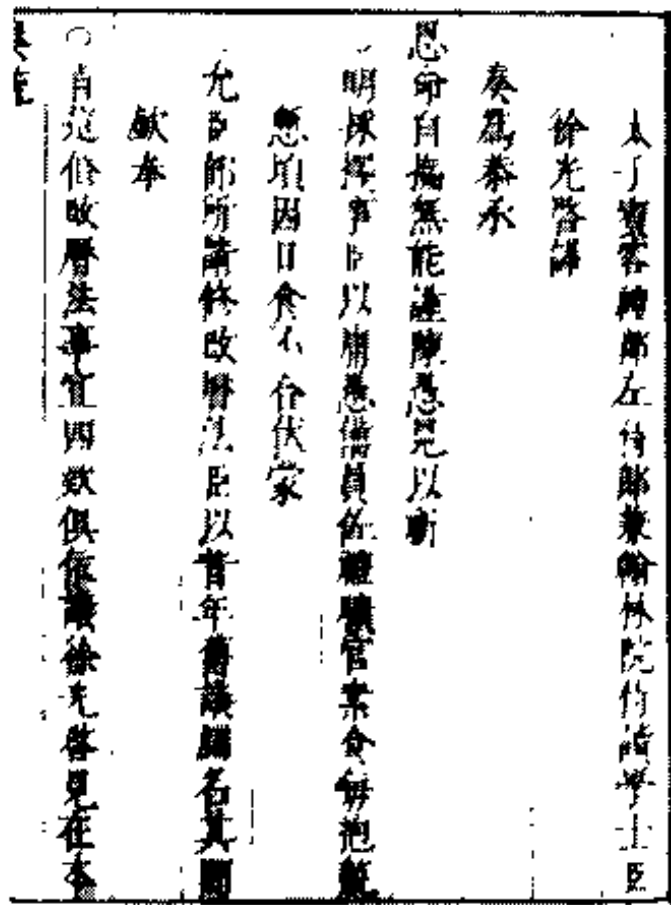 太子賓客禮部左侍郎兼翰林院侍讀學士臣
徐光啓謹
奏爲恭承
恩命自揣無能謹陳愚見以祈
明採擇事臣以庸愚備員佐禮曠官素食每抱慙
愆頃因日食不合伏蒙
允臣部所請修改曆法臣以昔年舊議臚名其間
獻奉
旨這修改曆法事宜四款俱依議徐光啓見在本